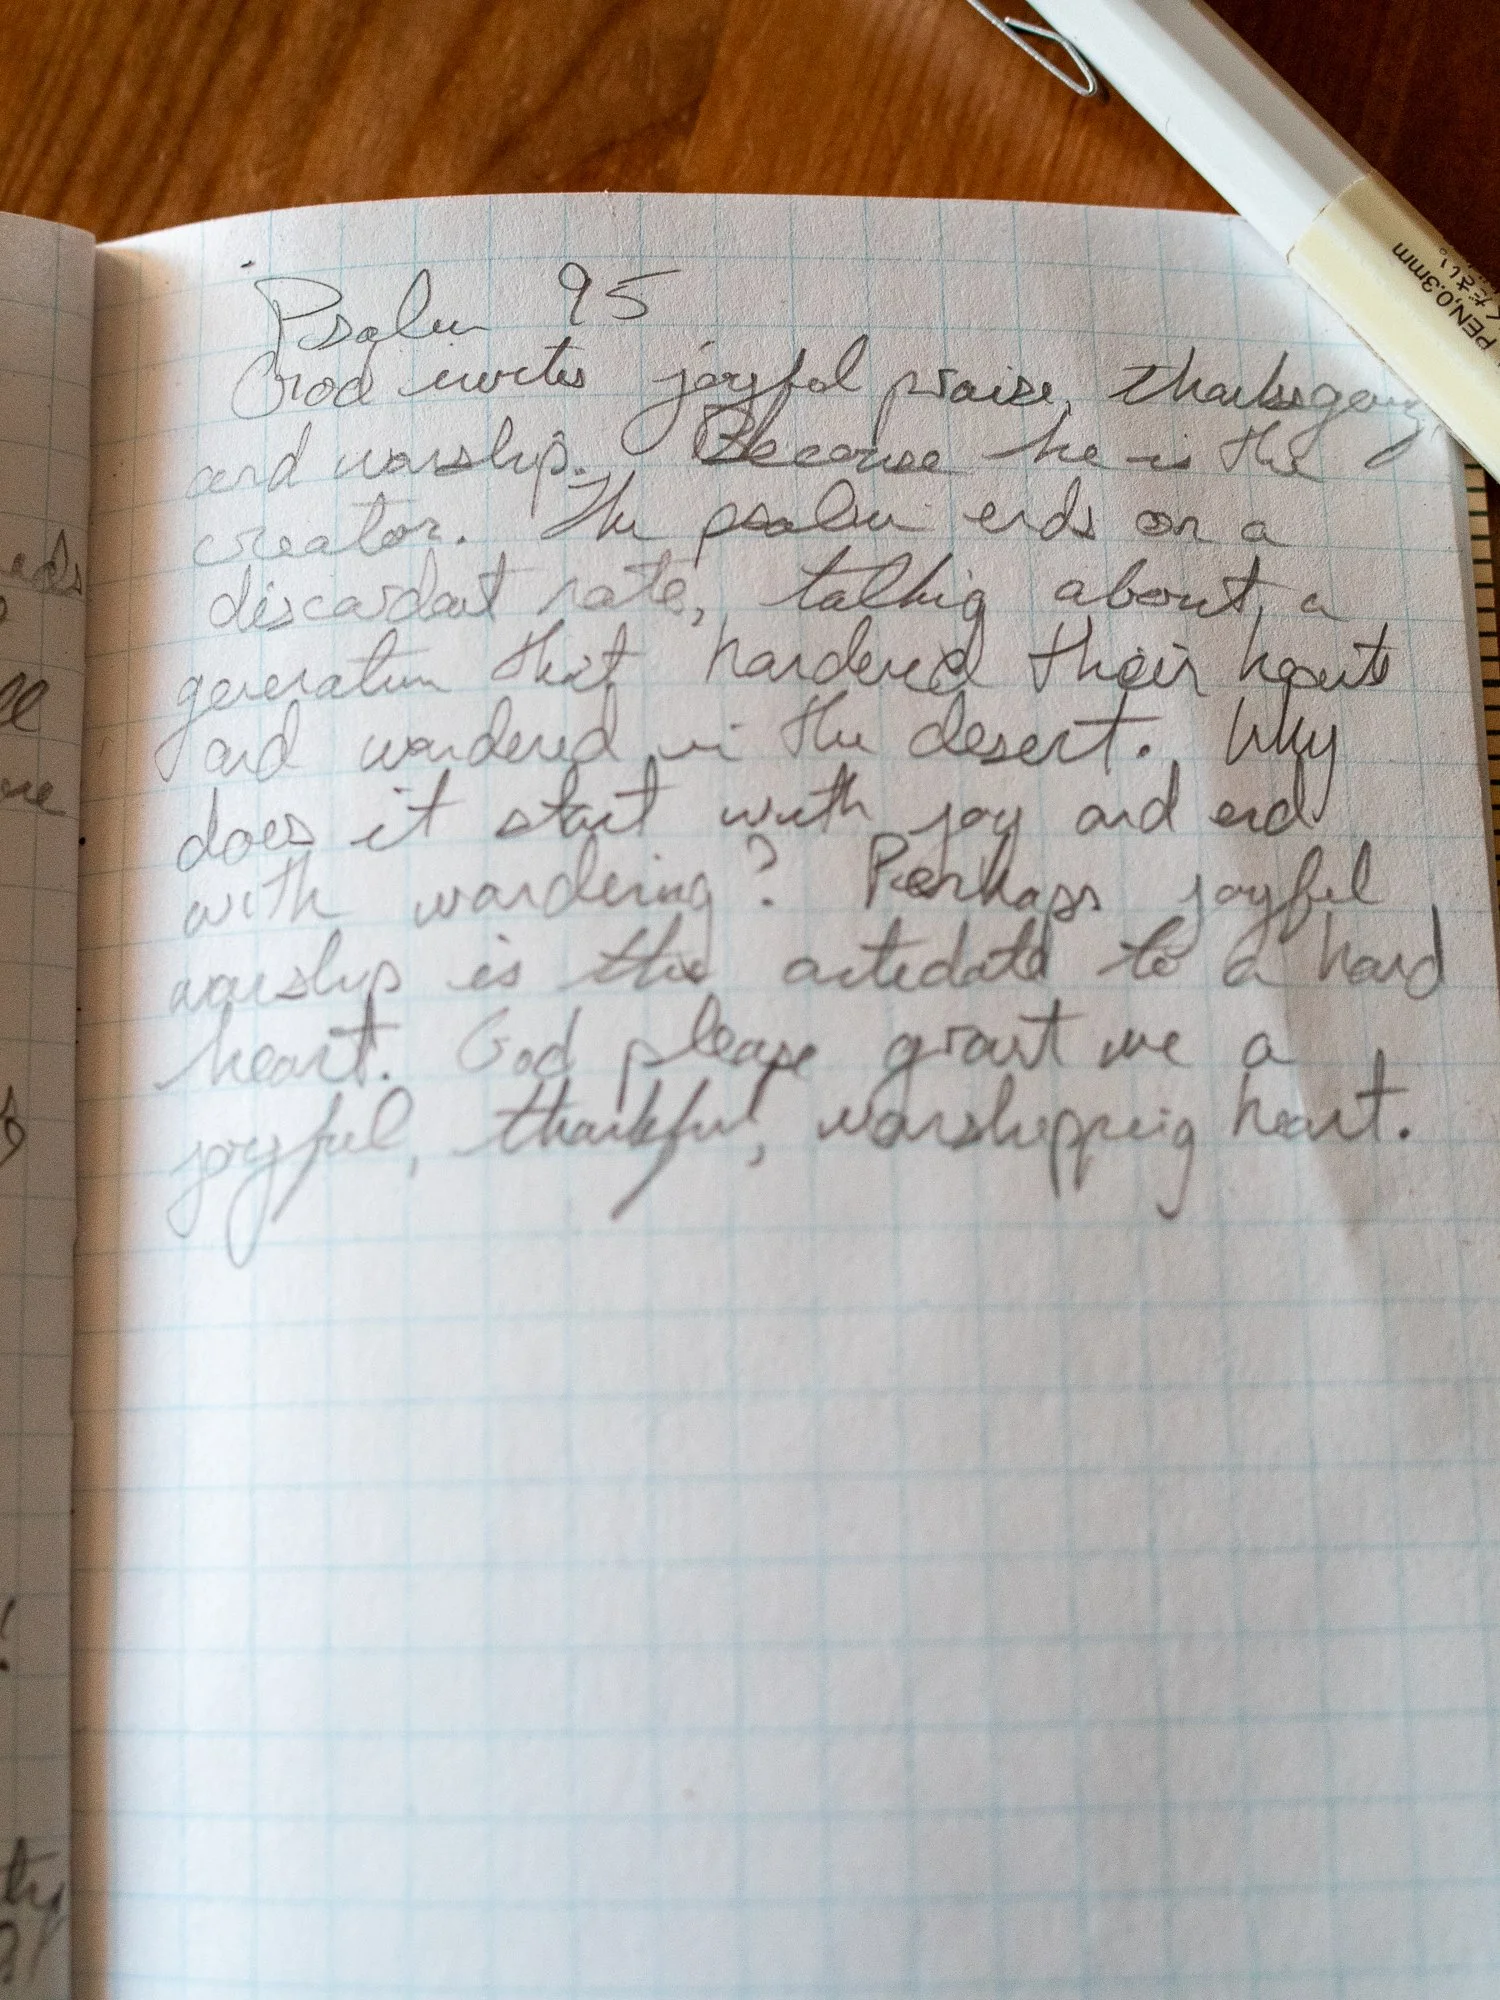 Psalm 95
God invites joyful praise, thanksgiving,
and worship. Because he is the
creator. The psalm ends on a
discordant note, talking about a
generation that hardened their hearts
and wandered in the desert. Why
does it start with joy and end
with wandering? Perhaps joyful
worship is the antedote to a hard
heart. God please grant me a
joyful, thankful, worshipping heart.
PEN, 0.3mm
ださい。